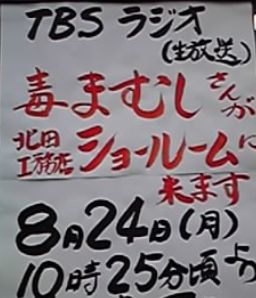 TBS ラジオ
(生放送)
毒まむしさんが
北田工務店ショールームに
来ます
8月24日(月)
10時25分頃より